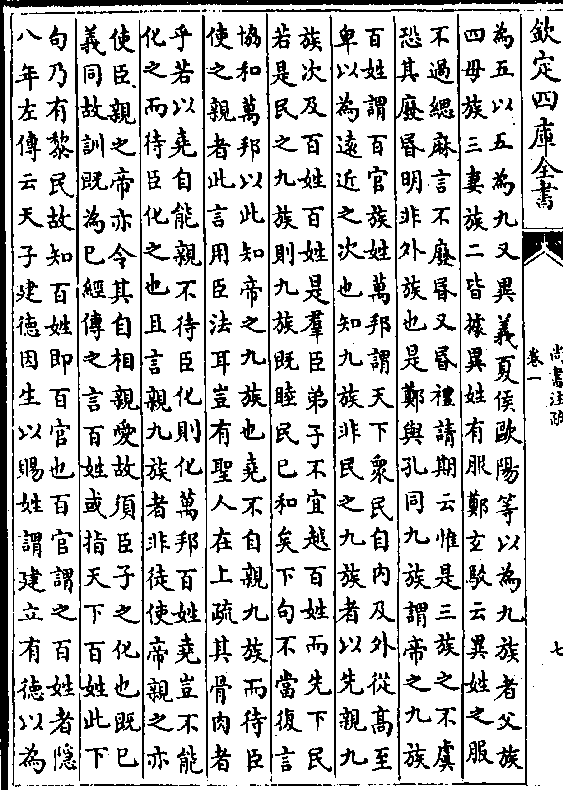 欽定四庫全書
尚書注疏
卷一
七
為五以五為九又異義夏侯歐陽等以為九族者父族
四母族三妻族二皆據異姓有服鄭玄駁云異姓之服
不過緦麻言不廢昏又昏禮請期云惟是三族之不虞
恐其廢昏明非外族也是鄭與孔同九族謂帝之九族
百姓謂百官族姓萬邦謂天下衆民自内及外從髙至
卑以為遠近之次也知九族非民之九族者以先親九
族次及百姓百姓是羣臣弟子不宜越百姓而先下民
若是民之九族則九族既睦民已和矣下句不當復言
協和萬邦以此知帝之九族也堯不自親九族而待臣
使之親者此言用臣法耳豈有聖人在上疏其骨肉者
乎若以堯自能親不待臣化則化萬邦百姓堯豈不能
化之而待臣化之也且言親九族者非徒使帝親之亦
使臣親之帝亦令其自相親愛故須臣子之化也既已
義同故訓既為已經傳之言百姓或指天下百姓此下
句乃有黎民故知百姓即百官也百官謂之百姓者隱
八年左傳云天子建德因生以賜姓謂建立有德以為